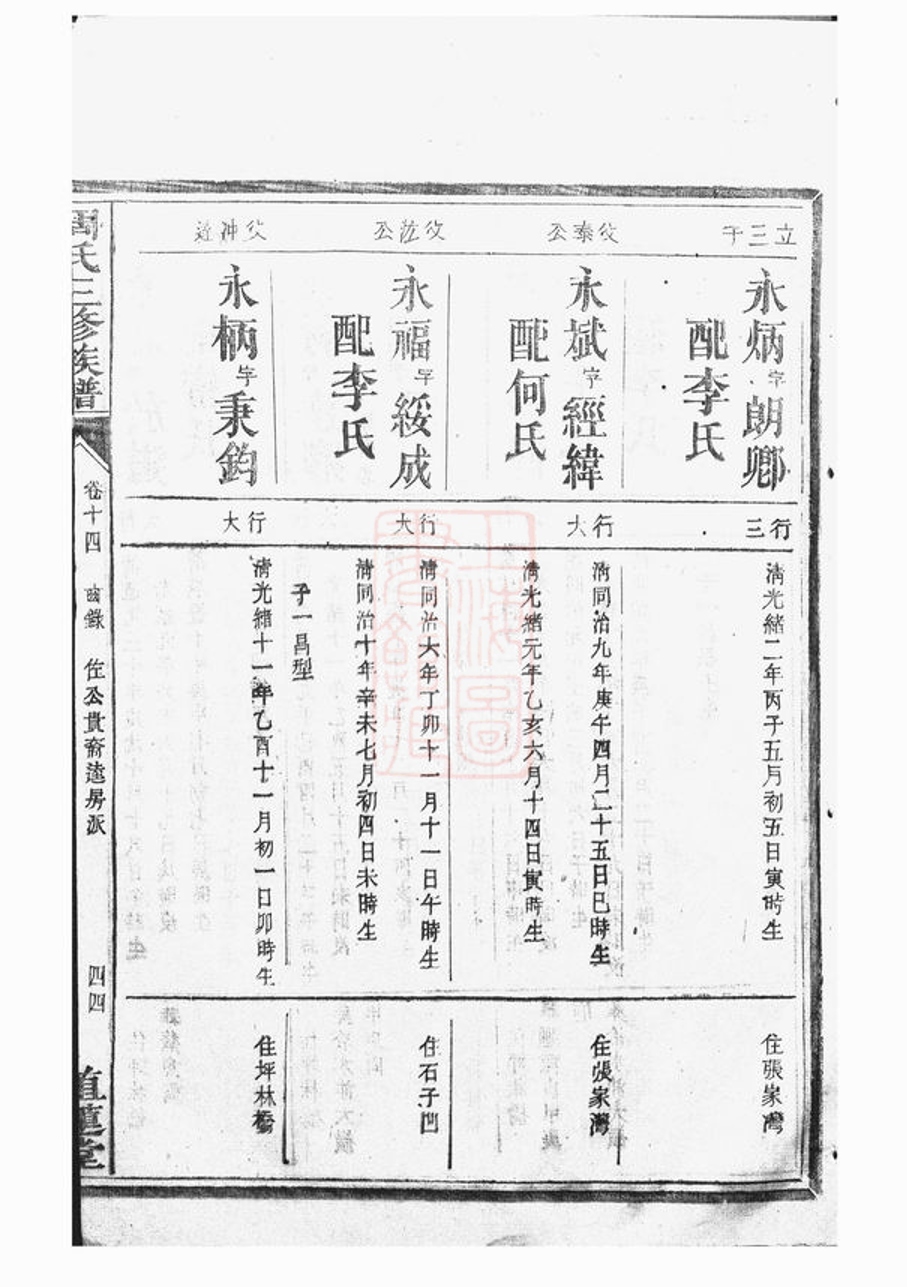 立三子
永炳字朗卿
配李氏
行三
清光緒二年丙子五月初五日寅時生
住張家灣
父泰公
永斌字經緯
配何氏
行大
清同治九年庚午四月二十五日巳時生
清光緒元年乙亥六月十四日寅時生
住張家灣
父公
永福字綏成
配李氏
行大
清同治六年丁卯十一月十一日午時生
清同治十年辛未七月初四日未時生
子一昌型
住石子凹
父冲
永柄字秉鈞
行大
清光緒十一年乙酉十一月初一日卯時生
住坪林橋
周氏三修族譜
卷十四
齒錄
佐公貴裔逵房派
四四